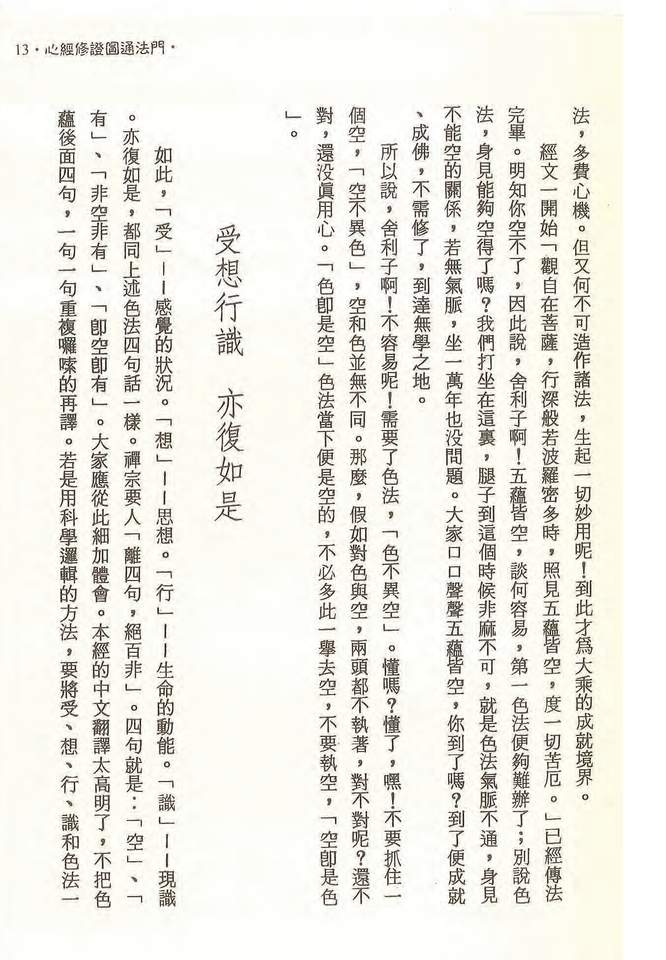 13・心經修證圓通法門・
法，多費心機。但又何不可造作諸法，生起一切妙用呢！到此才爲大乘的成就境界。
經文一開始「觀自在菩薩，行深般若波羅密多時，照見五蘊皆空，度一切苦厄。」已經傳法
完畢。明知你空不了，因此說，舍利子啊！五蘊皆空，談何容易，第一色法便夠難辦了；別說色
法，身見能夠空得了嗎？我們打坐在這裏，腿子到這個時候非麻不可，就是色法氣脈不通，身見
不能空的關係，若無氣脈，坐一萬年也没問題。大家口口聲聲五蘊皆空，你到了嗎？到了便成就
、成佛，不需修了，到達無學之地。
所以說，舍利子啊！不容易呢！需要了色法，「色不異空」。懂嗎？懂了，嘿！不要抓住一
個空，「空不異色」，空和色並無不同。那麼，假如對色與空，兩頭都不執著，對不對呢？還不
對，還没眞用心。「色卽是空」色法當下便是空的，不必多此一擧去空，不要執空，「空卽是色
」。
受想行識　亦復如是
如此，「受」——感覺的狀況。「想」——思想。「行」——生命的動能。「識」——現識
。亦復如是，都同上述色法四句話一樣。禪宗要人「離四句，絕百非」。四句就是：「空」、「
有」、「非空非有」、「卽空卽有」。大家應從此細加體會。本經的中文翻譯太高明了，不把色
蘊後面四句，一句一句重複囉嗦的再譯。若是用科學邏輯的方法，要將受、想、行、識和色法一